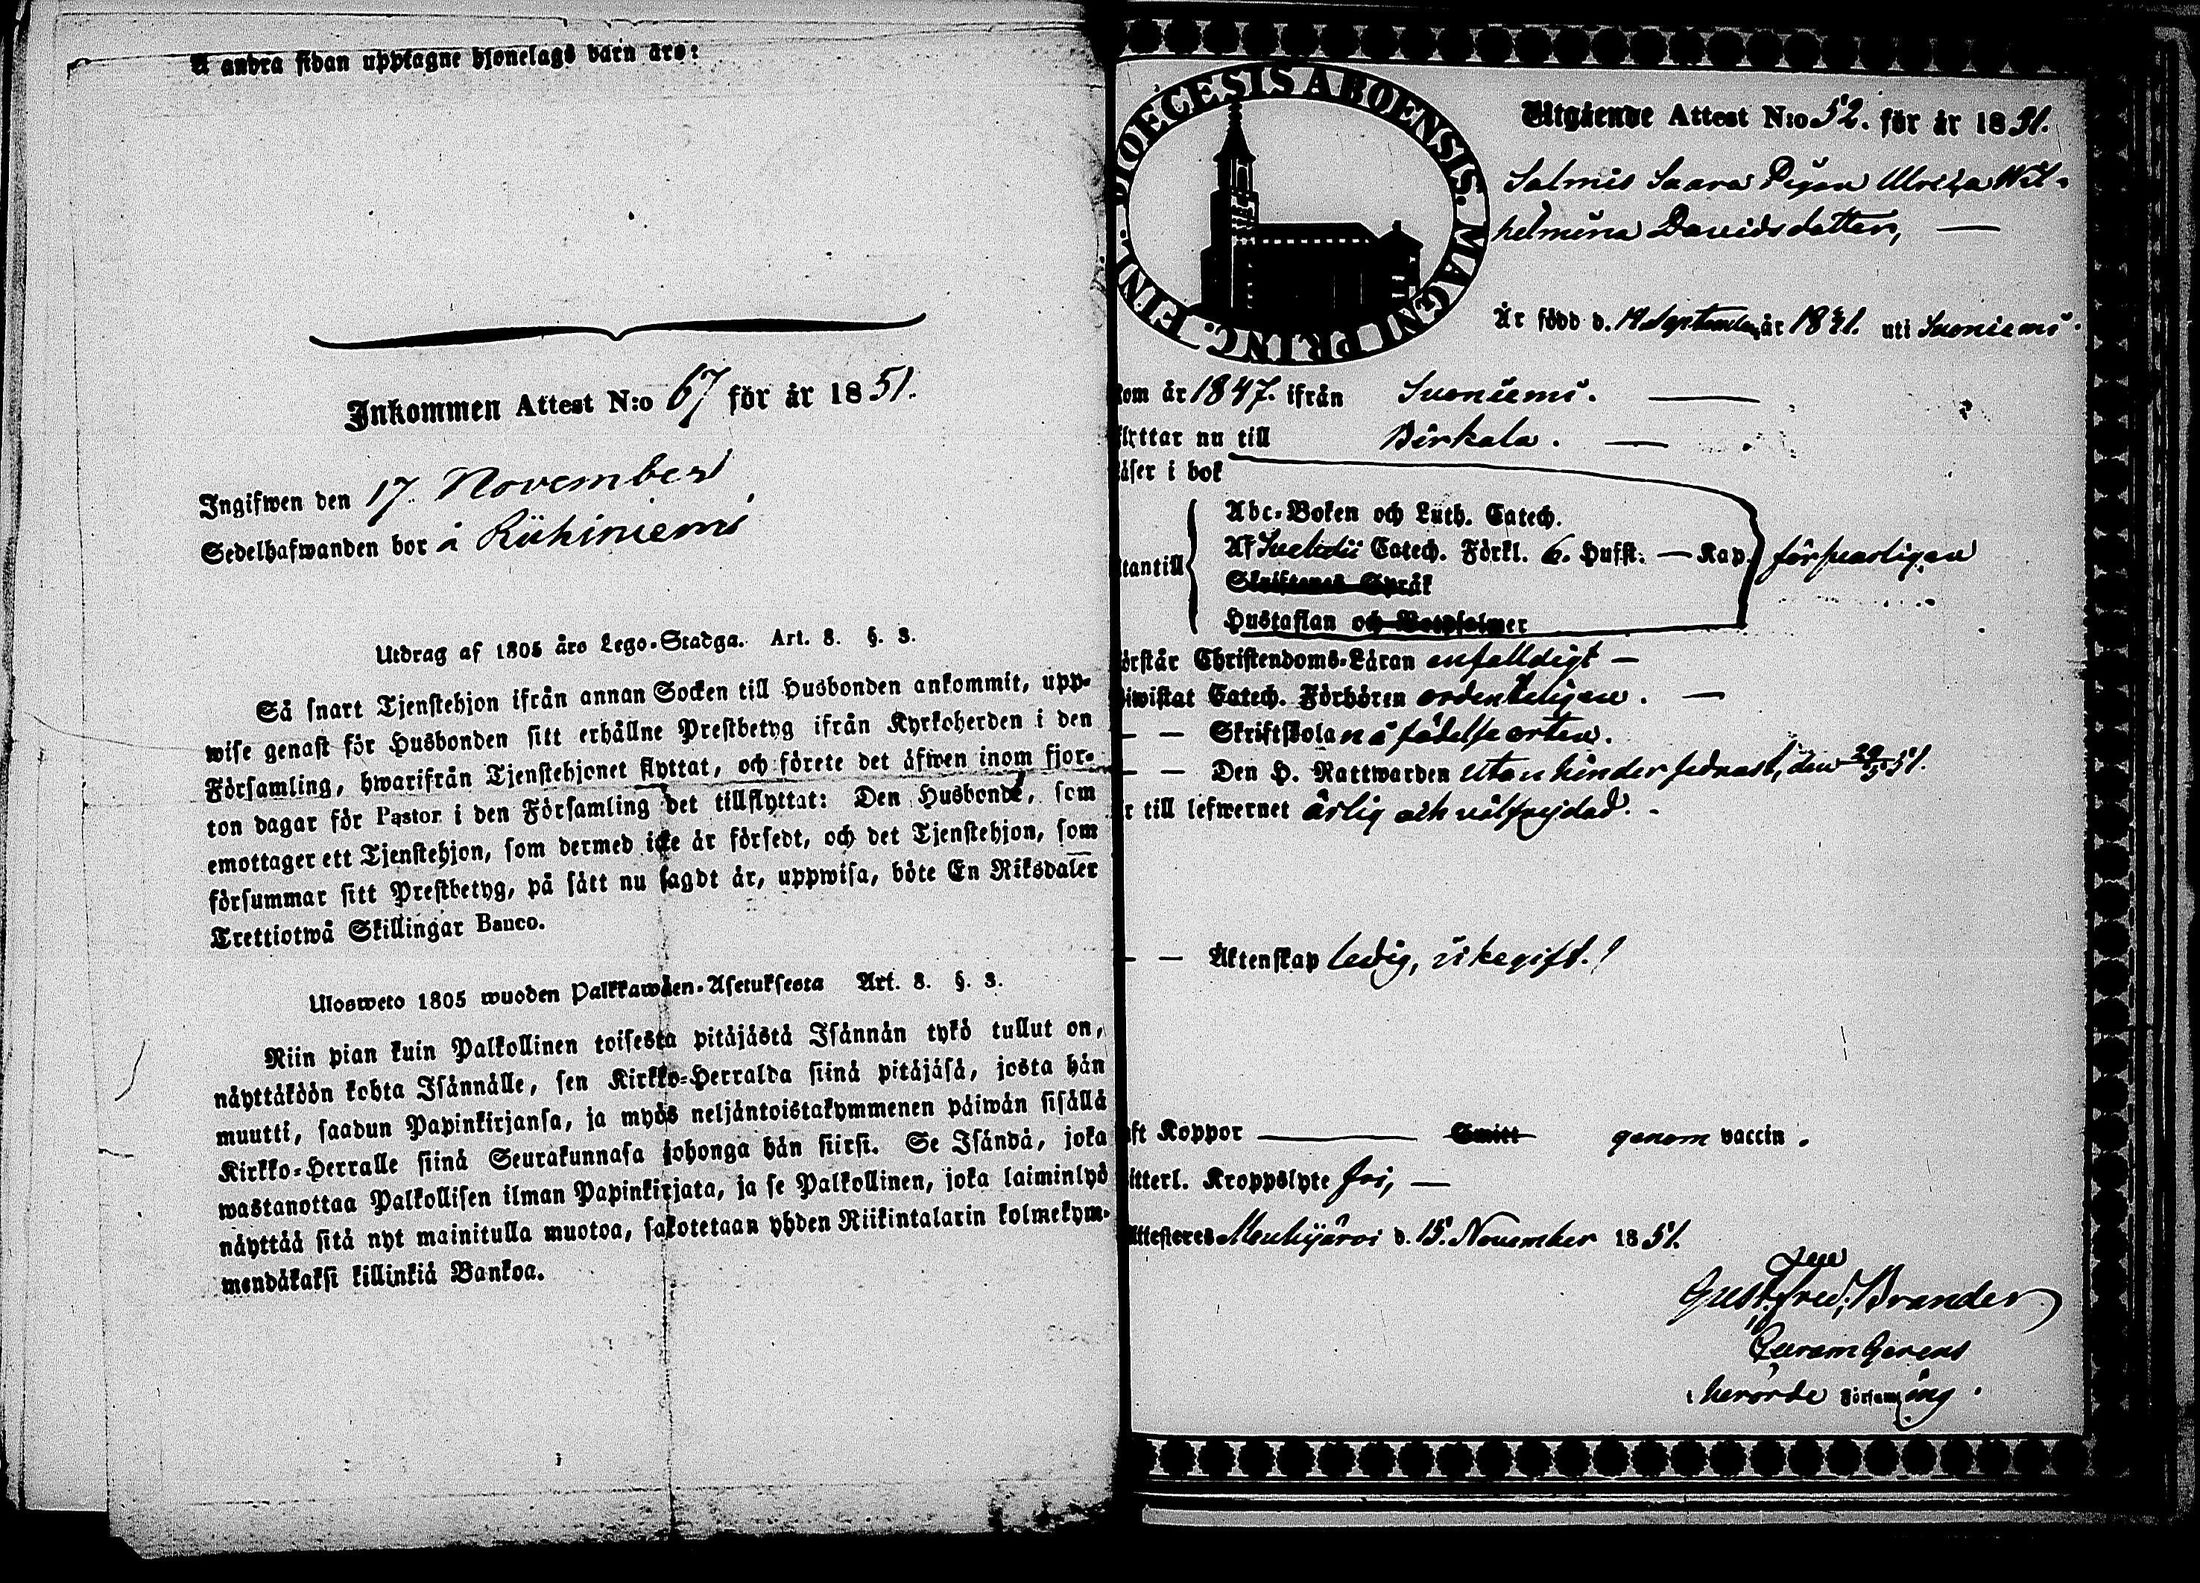 Å andra sidan upptagne hjonelags barn äro:
Inkommen Attest N:o 67 för år 1851.
Ingifwen den 17 November
Sedelhafwanden bor å Riihiniemi
Utdrag af 1805 års Lego-Stadga. Art. 8. §. 3.
Så snart Tjenstehjon ifrån annan Socken till Husbonden ankommit, upp-
wise genast för Husbonden sitt erhållne Prestbetyg ifrån Kyrkoherden i den
Församling, hwarifrån Tjenstehjonet flyttat, och förete det äfwen inom fjor-
ton dagar för Pastor i den Församling det tillflyttat: Den Husbonde, som
emottager ett Tjenstehjon, som dermed icke är försedt, och det Tjenstehjon, som
försummar sitt Prestbetyg, på sätt nu sagdt är, uppwisa, böte En Riksdaler
Trettiotwå Skillingar Banco.
Ulosweto 1805 wuoden Palkkawäen-Asetuksesta Art. 8. §. 3.
Niin pian kuin Palkollinen toisesta pitäjästä Isännän tykö tullut on,
näyttäköön kohta Isännälle, sen Kirkko-Herralda siinä pitäjäsä, josta hän
muutti, saadun Papinkirjansa, ja myös neljäntoistakymmenen päiwän sisällä
Kirkko-Herralle siinä Seurakunnasa johonga hän siirsi. Se Isändä, joka
wastanottaa Palkollisen ilman Papinkirjata, ja se Palkollinen, joka laiminlyö
näyttää sitä nyt mainitulla muotoa, sakotetaan yhden Riikintalarin kolmekym-
mendäkaksi killinkiä Bankoa.
DIOECESIS ABOENSIS. MAGNI PRINC. FINL.
Utgående Attest N:o 52. för år 1851.
Salmis Saara Pigan Ulrica Wil-
helmina Davidsdotter,
Är född d. 19 September år 1831. uti Suoniemi.
kom år 1847. ifrån Suoniemi.
flyttar nu till Birkala.
läser i bok
Abc-Boken och Luth. Catech.
utantill Af Svebelii Catech. Förkl. 6. Hufst. — Kap. försvarligen
Skriftenes Språk
Hustaflan och Botpsalmer
förstår Christendoms-Läran enfalldigt
biwistat Catech. Förhören ordenteligen.
Skriftskolan å födelseorten.
Den H. Nattwarden utan hinder sednast, den
är till lefwernet ärlig och välfrejdad.
Äktenskap ledig, icke gift.
haft Koppor Smitt genom vaccin.
witterl. Kroppslyte fri,
Attesteres Mouhijärvi d. 15. November 1851.
Gust. Fred. Brander
Curam Gerens
i berörde Församling.